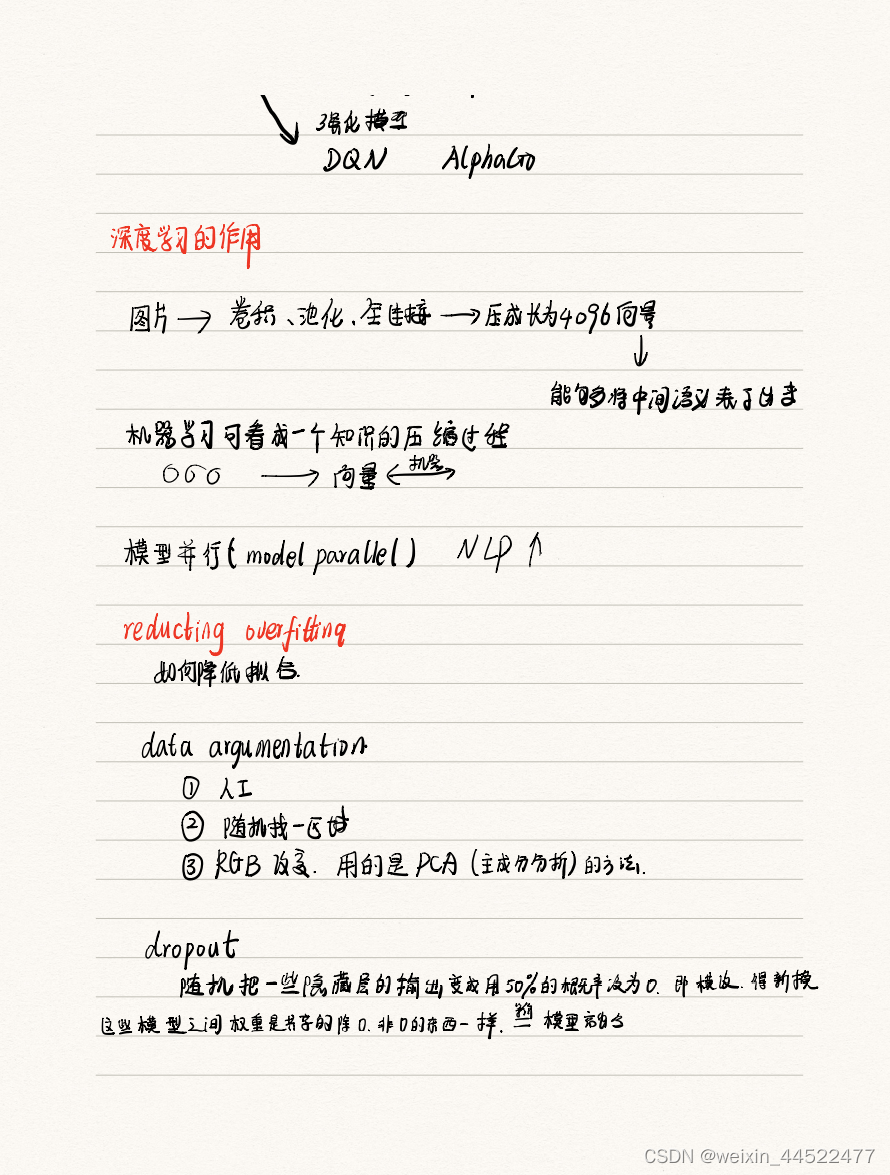 强化模型
DQN AlphaGo
深度学习的作用
图片 → 卷积、池化、全连接 → 压成长为4096向量
↓
能够将中间语义表示出来
机器学习可看成一个知识的压缩过程
机器
→ 向量 ↔
模型并行(model parallel) NLP ↑
reducting overfitting
如何降低拟合.
data argumentation
① 人工
② 随机找一区域
③ RGB 改变. 用的是 PCA (主成分分析) 的方法.
dropout
随机把一些隐藏层的输出变成用50%的概率设为0. 即 模改. 得新模
这些模型之间权重是共享的除0.非0的东西一样. 模型融合
CSDN @weixin_44522477